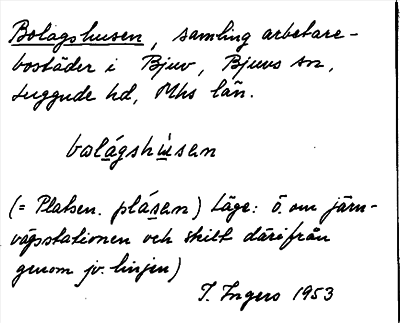 Bolagshusen, samling arbetare-
bostäder i Bjuv, Bjuvs sn,
Luggude hd, Mhs län.
bωlágshùsan
(= Platsen. plásan) Läge: ö. om järn-
vägsstationen och skilt därifrån
genom jv. linjen)
I. Ingers 1953